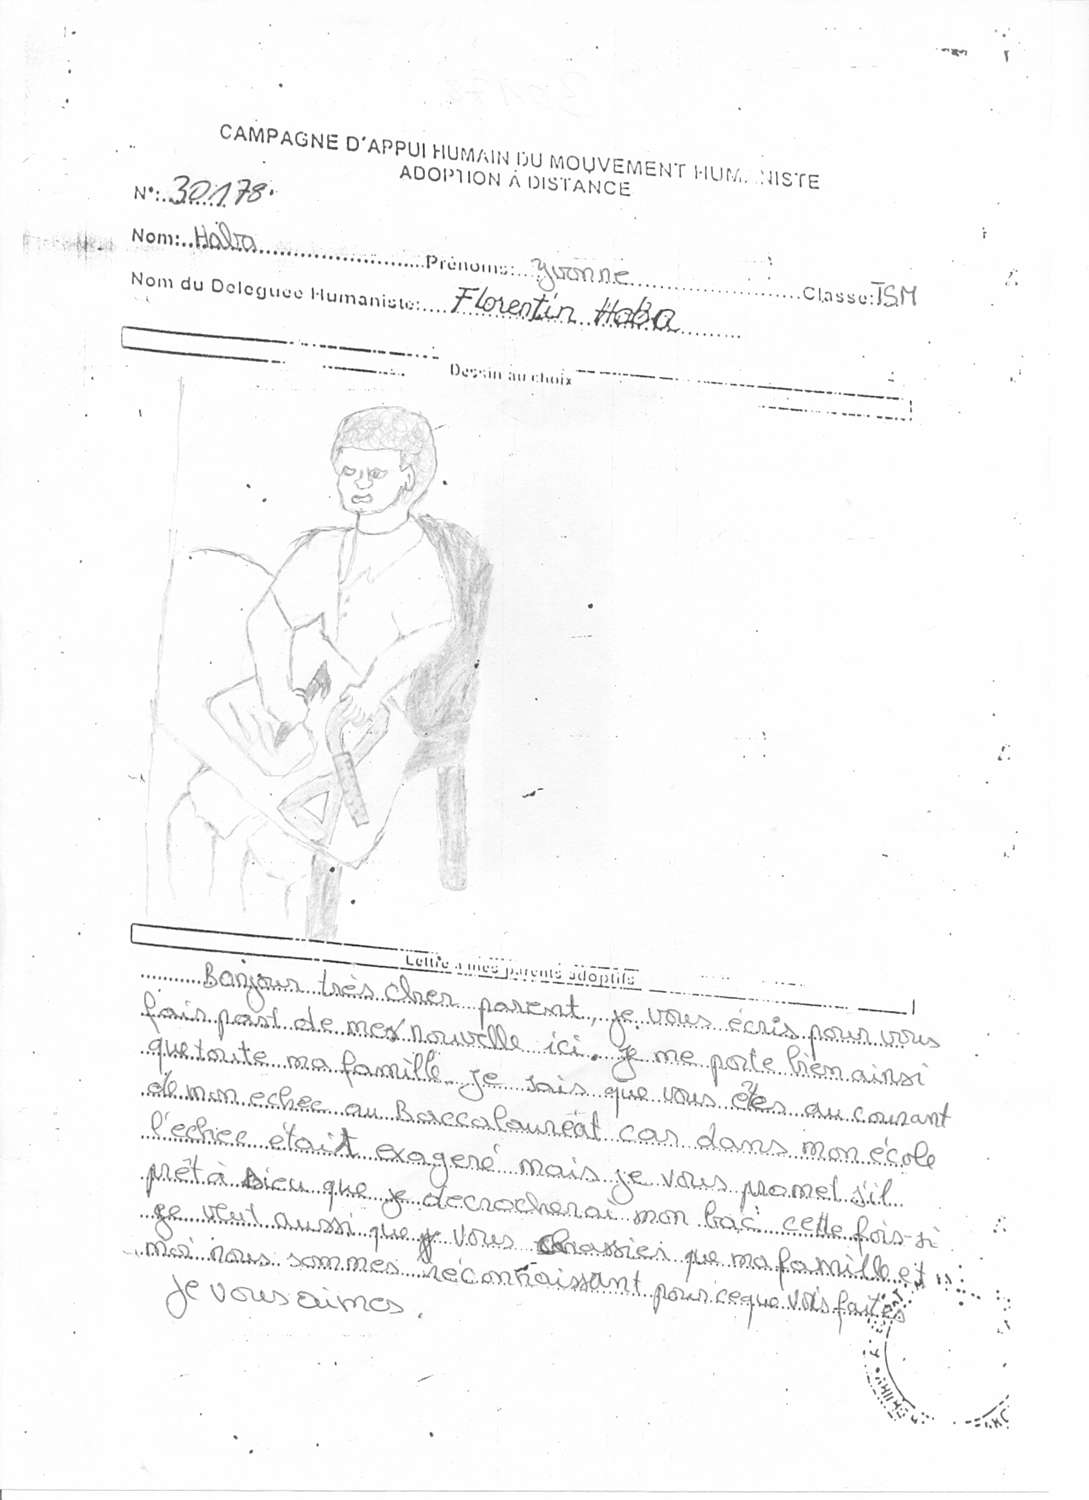 CAMPAGNE D'APPUI HUMAIN DU MOUVEMENT HUMANISTE
ADOPTION À DISTANCE
N°: 30178.
Nom: Haba Prénoms: Yvonne Classe: TSM
Nom du Deleguée Humaniste: Florentin Haba
Dessin au choix
Lettre a mes parents adoptifs
Bonjour très cher parent, je vous écris pour vous
fais part de mes nouvelle ici. Je me porte bien ainsi
que toute ma famille. Je sais que vous êtes au courant
de mon echec au Baccalaureat car dans mon école
l'echec était exageré mais je vous promet s'il
prêt à Dieu que je decrocherai mon bac cette fois-si
je veut aussi que je vous que ma famille et
moi nous sommes réconnaissant pour ce que vous faites
Je vous aimes.